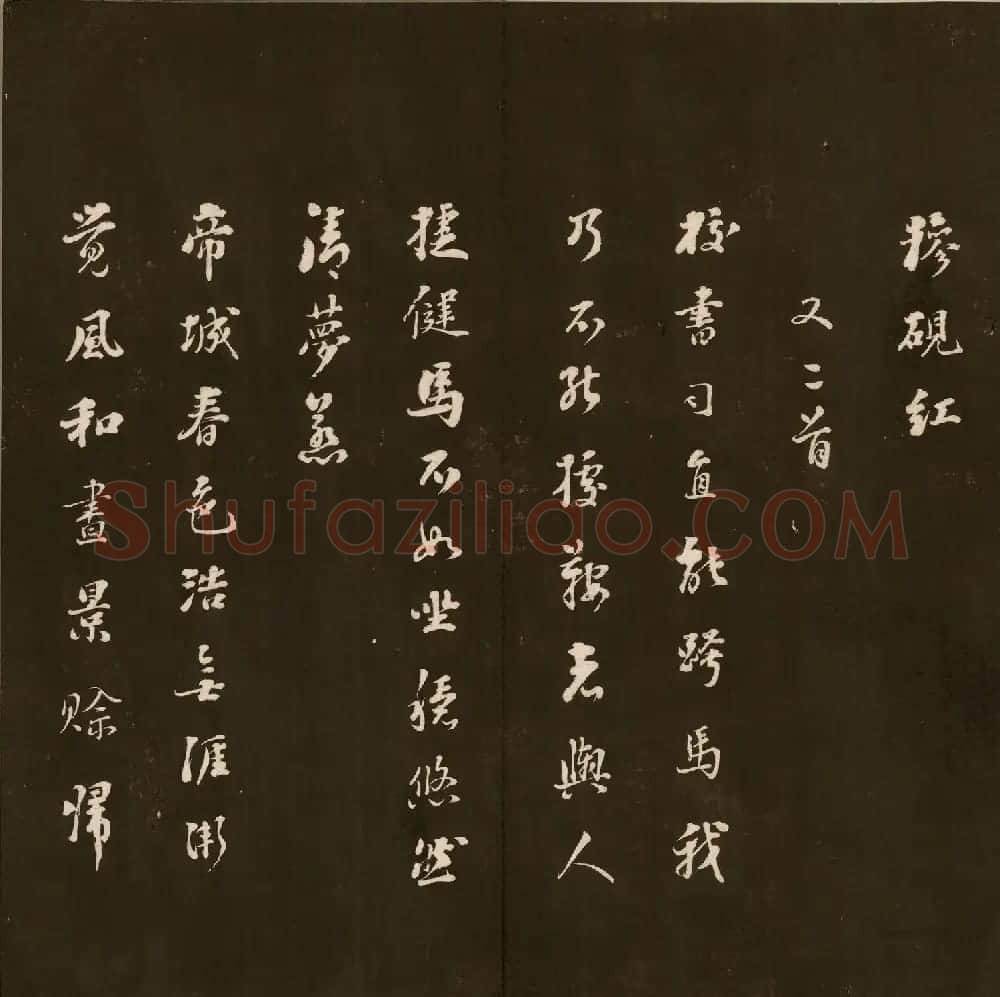 糝硯紅
又二首
校書司直能跨馬我
乃不能據鞍者輿人
捷健馬不如坐穩悠然
清夢惹
帝城春色浩無涯漸
覺風和晝景賒歸
Shufaziliao.COM